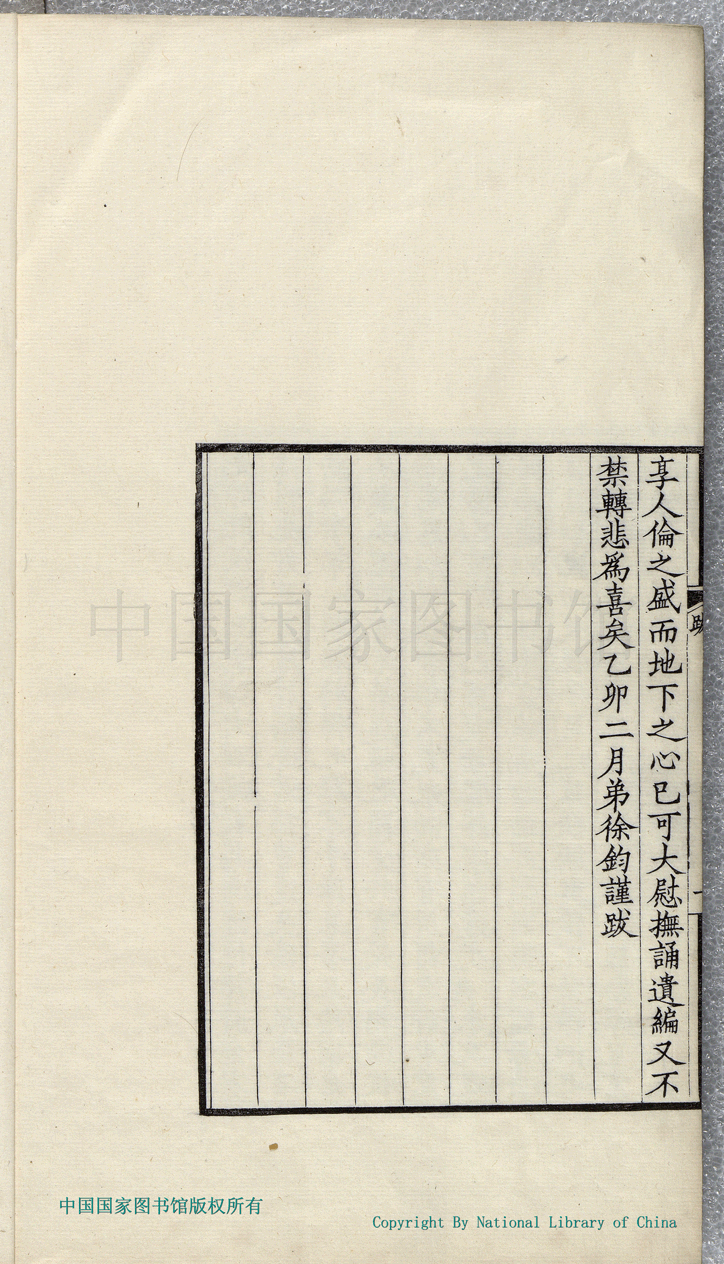 享人倫之盛而地下之心已可大慰撫誦遺編又不
禁轉悲為喜矣乙卯二月弟徐鈞謹跋
跋
一
中国国家图书馆
中国国家图书馆版权所有
Copyright By National Library of China